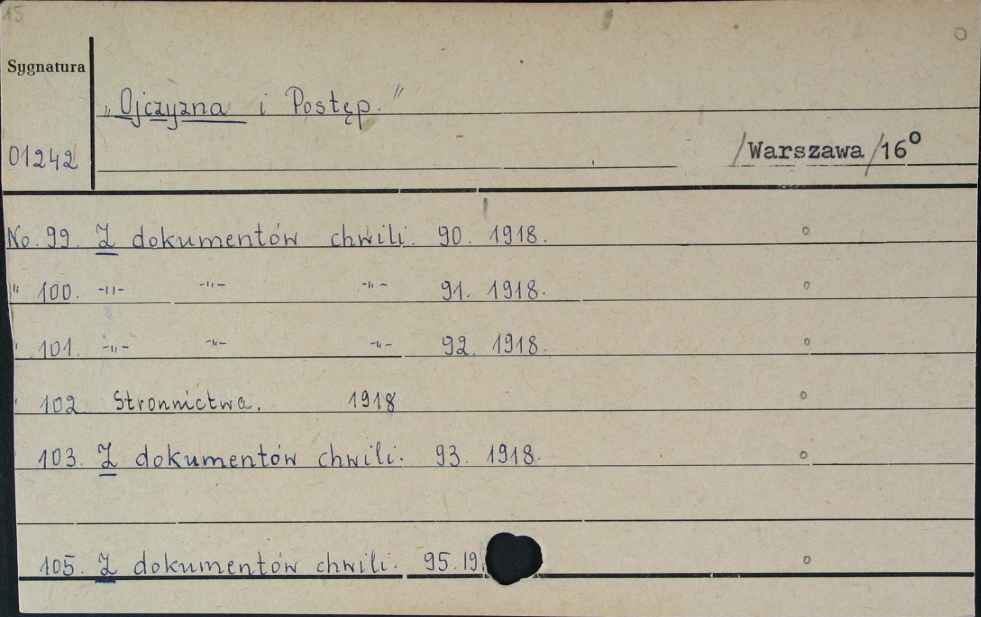 15
Sygnatura
„Ojczyzna i Postęp."
01242
/Warszawa/16°
No. 99. Z dokumentów chwili. 90. 1918.
" 100. -"- -"- -"- 91. 1918.
" 101. -"- -"- -"- 92. 1918.
" 102 Stronnictwa. 1918
103. Z dokumentów chwili. 93. 1918.
105. Z dokumentów chwili. 95. 19